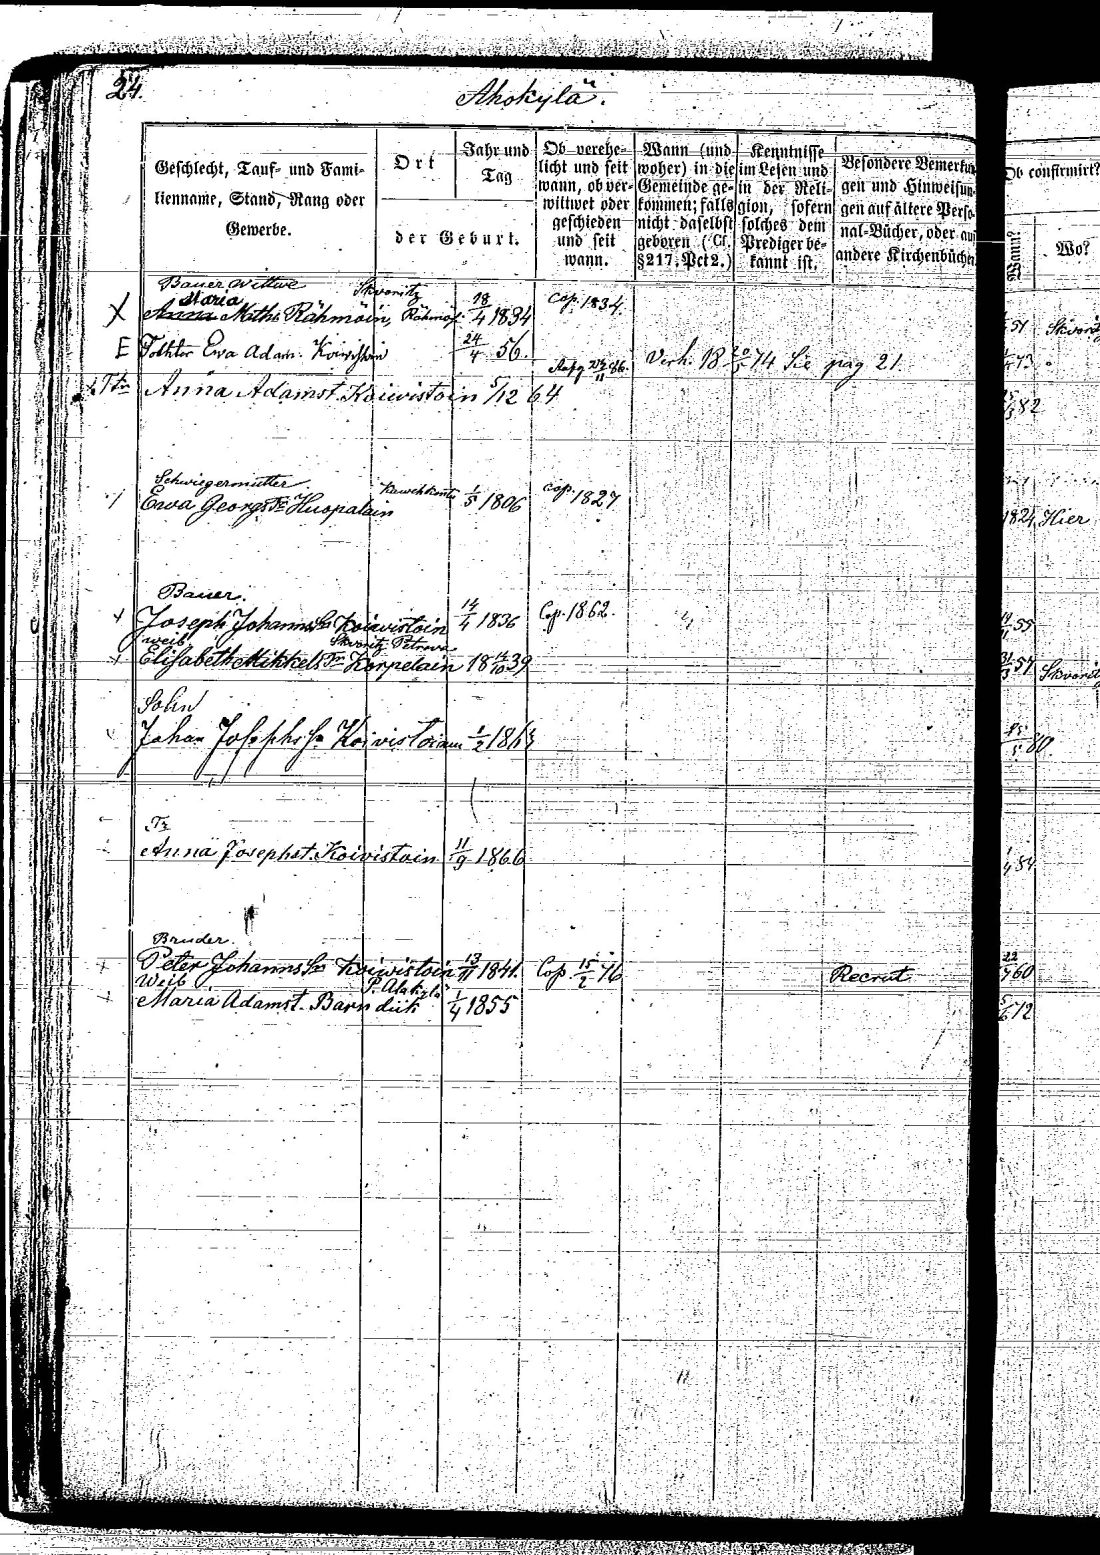 24.
Ahokylä.
Geschlecht, Tauf- und Fami-
lienname, Stand, Rang oder
Gewerbe.
Ort
Jahr und
Tag
der Geburt.
Ob verehe-
licht und seit
wann, ob ver-
wittwet oder
geschieden
und seit
wann.
Wann (und
woher) in die
Gemeinde ge-
kommen; falls
nicht daselbst
geboren (Cf.
§217. Pct 2.)
Kenntnisse
im Lesen und
in der Reli-
gion, sofern
solches dem
Prediger be-
kannt ist.
Besondere Bemerkun
gen und Hinweisun-
gen auf ältere Perso-
nal-Bücher, oder aus
andere Kirchenbücher
Ob confirmirt?
Wann?
Wo?
Bauer Wittwe Skworitz
Maria
X Anna Miths Rähmöin, 18/4 1834 Cop. 1834. 51 Skword
E Tochter Ewa Adam. Koiwistoin 24/4 56. Verh. 18 74 Sie pag 21. 73
Ttr Anna Adamst. Koiwistoin 5/12 64 82
Schwiegermutter
Ewa Georgs Tr Huopalain 1/5 1806 Cop. 1827 1824 Hier
Bauer.
+ Joseph Johanns Sn Koiwistoin 14/4 1836 Cop. 1862. 55
Weib Skworitz Petrowa
+ Elisabeth Mikkels Tr Korpelain 18 14/10 39 31/3 57 Skword
Sohn
Johan Josephs Sn Koivistoinn 1/2 1863 80.
Tr
Anna Josephst. Koivistoin 11/9 1866 1/4 84
Bruder.
+ Peter Johanns Sn Koiwistoin 13/11 1841. Cop. 15/2 76 Recrut 60
Weib P. Ahokylä
+ Maria Adamst. Barndiik 1/4 1855 5/6 72